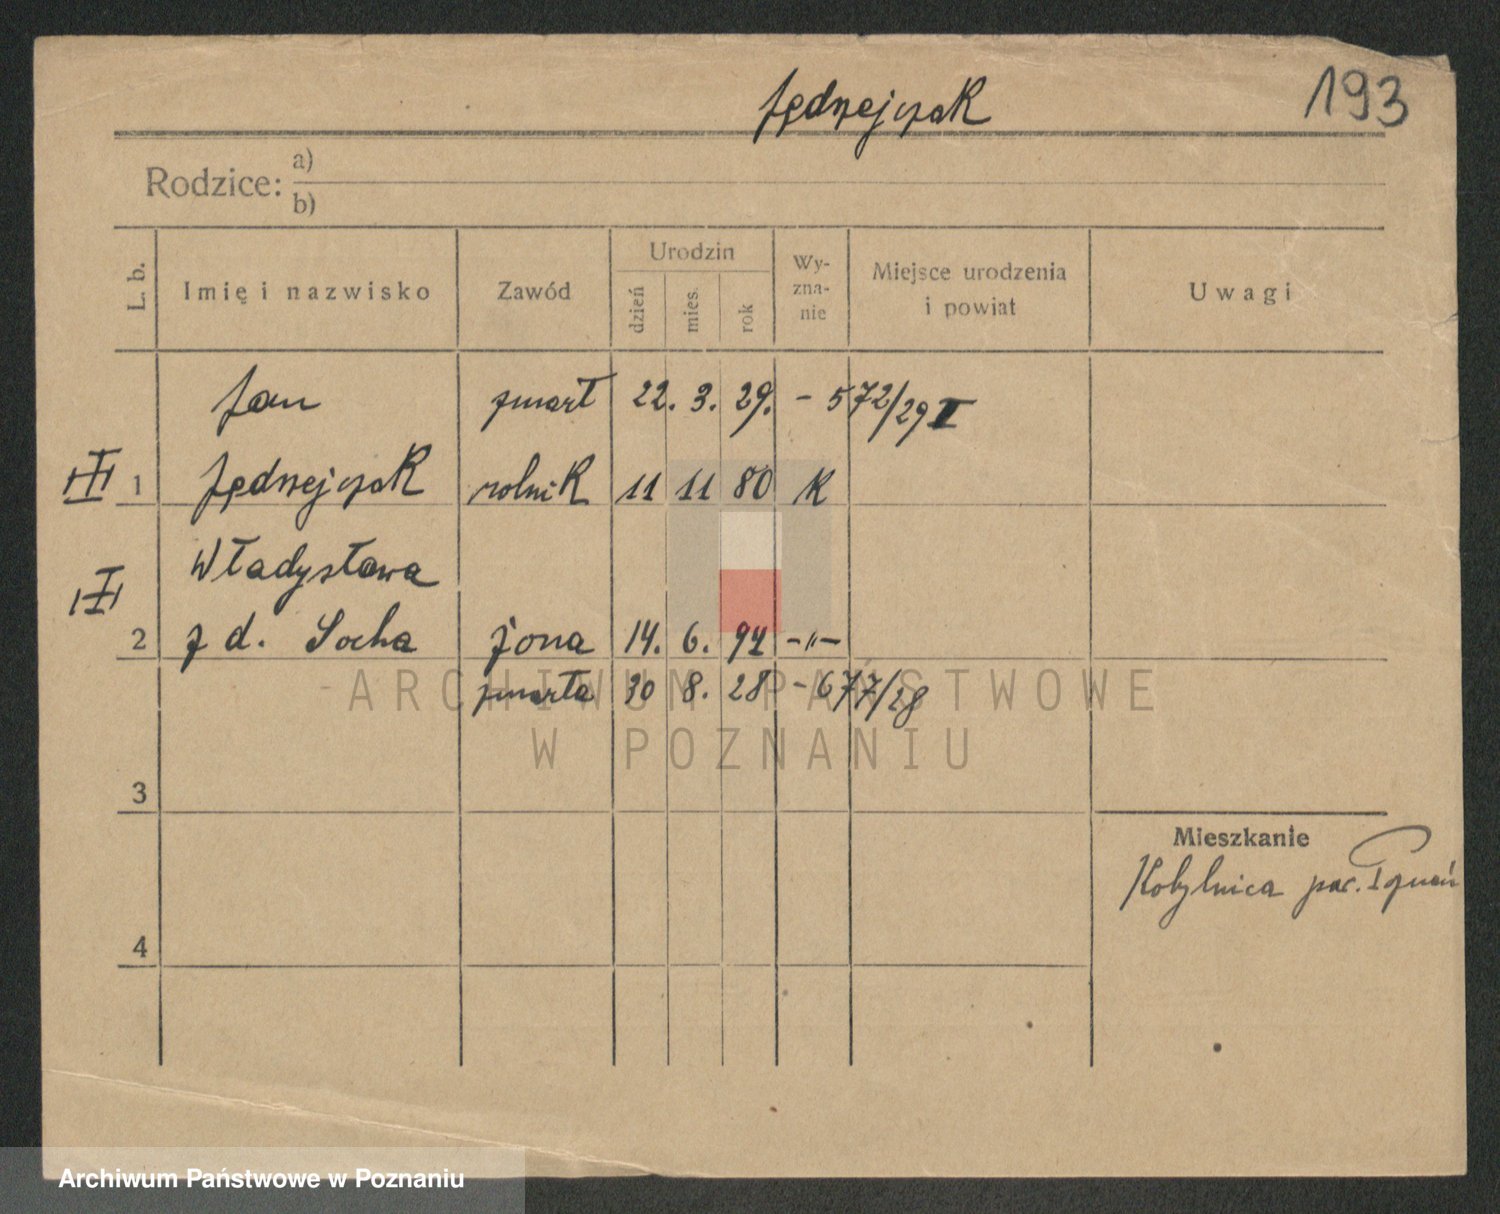 193
Jędrzejczak
Rodzice: a)
b)
L. b. Imię i nazwisko Zawód Urodzin dzień mies. rok Wy-zna-nie Miejsce urodzenia i powiat Uwagi
Jan zmarł 22. 3. 29. - 572/29 I
III 1 Jędrzejczak rolnik 11 11 80 K
Władysława
III 2 z d. Socha żona 14. 6. 94 -"-
zmarła 30 8. 28 - 677/28
3
Mieszkanie
Kobylnica pow. Poznań
4
ARCHIWUM PAŃSTWOWE
W POZNANIU
Archiwum Państwowe w Poznaniu